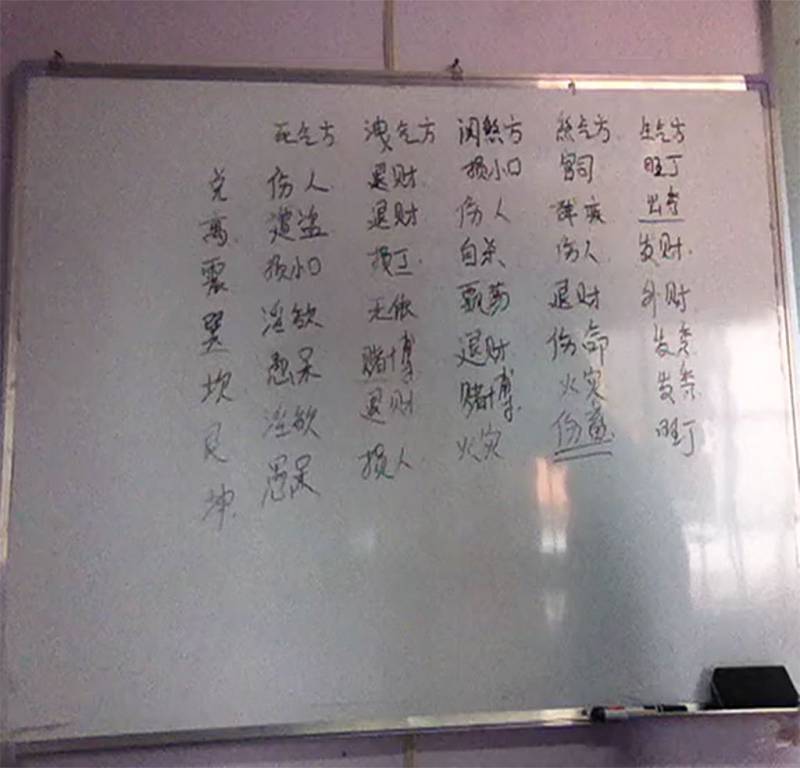 死气方 洩气方 关煞方 煞气方 生气方
兑 伤人 退财 损小口 官司 旺丁
离 遭盗 退财 伤人 出
震 损小口 损丁 自杀 伤人 发财
巽 淫欲 无依 飘荡 退财 外财
坎 愚呆 赌博 退财 伤命 发
艮 淫欲 退财 赌博 火灾 发
坤 愚呆 损人 火灾 伤 旺丁